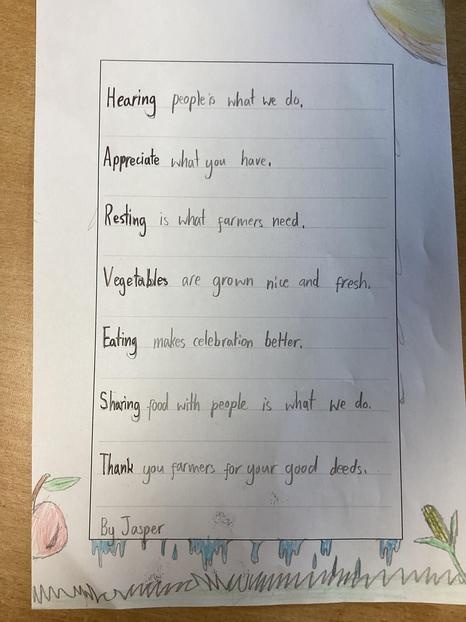 Hearing people is what we do.
Appreciate what you have.
Resting is what farmers need.
Vegetables are grown nice and fresh.
Eating makes celebration better.
Sharing food with people is what we do.
Thank you farmers for your good deeds.
By Jasper